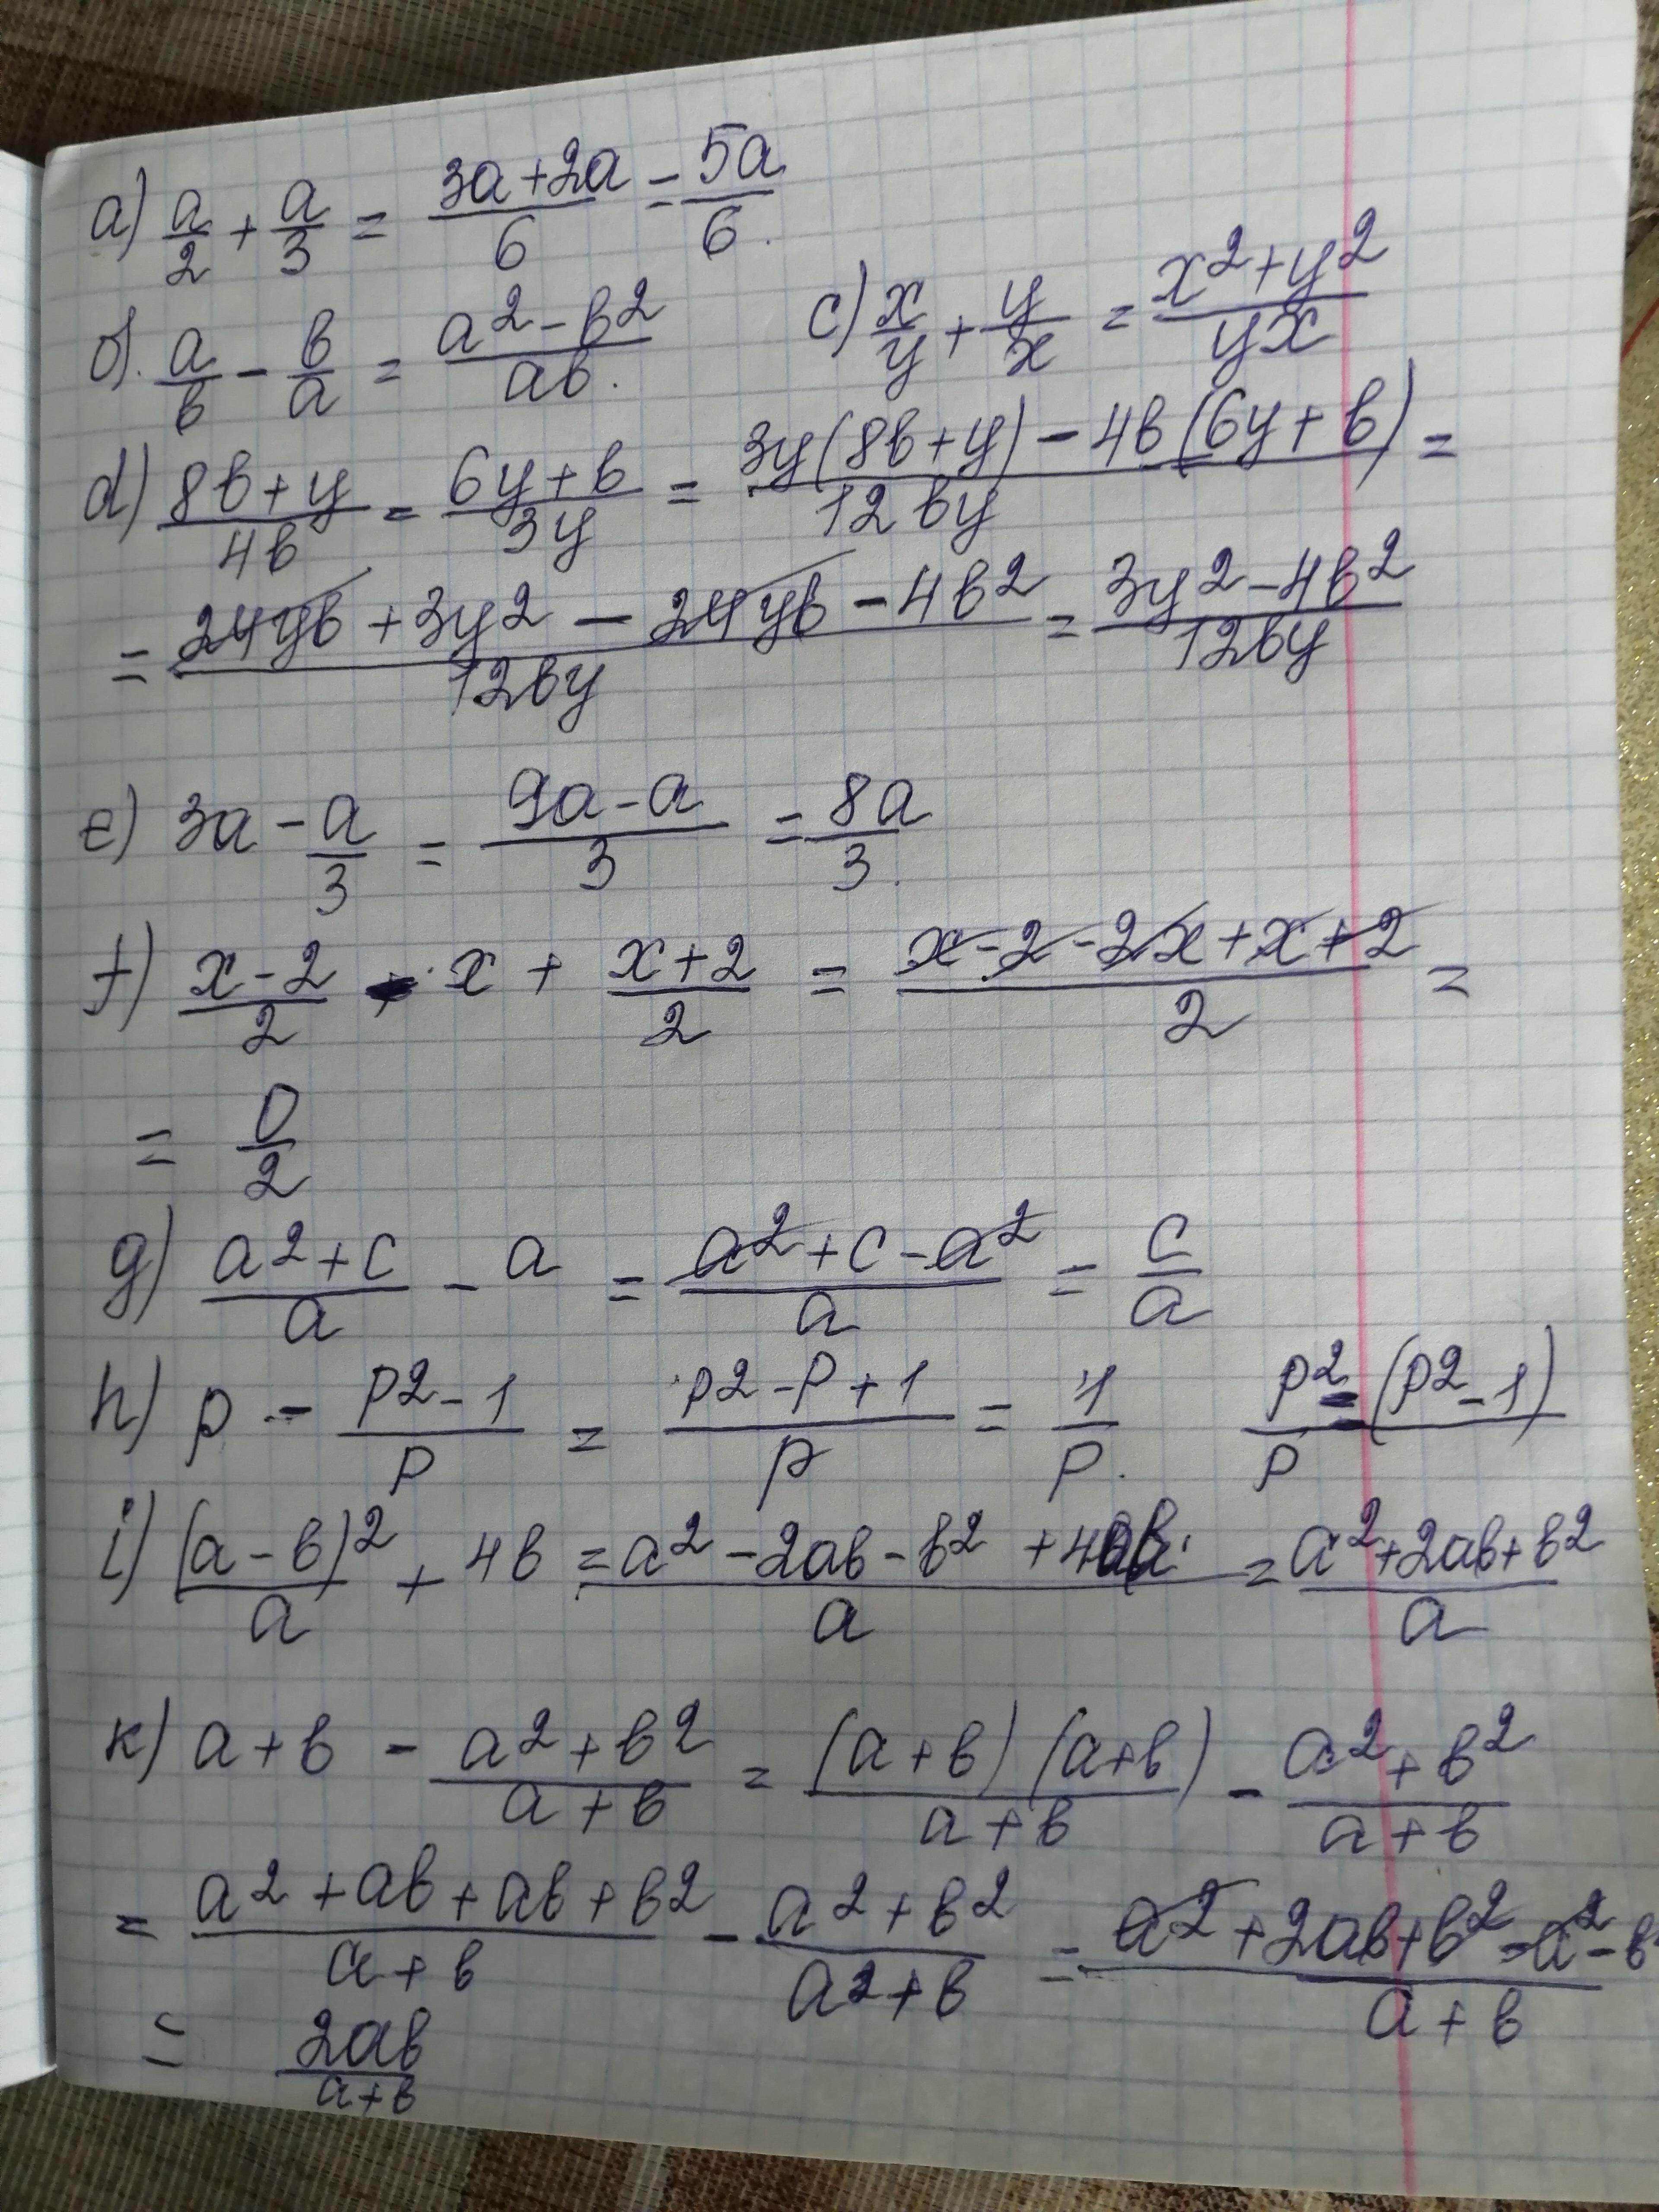 a) a/2 + a/3 = 3a+2a/6 = 5a/6.
б). a/в - в/a = a2-в2/aв.
c) x/y + y/x = x2+y2/yx
d) 8в+y/4в = 6y+в/3y = 3y(8в+y) - 4в(6y+в)/12вy =
= 24yв + 3y2 - 24yв - 4в2/12вy = 3y2-4в2/12вy
e) 3a - a/3 = 9a-a/3 = 8a/3.
f) x-2/2 - x + x+2/2 = x-2-2x+x+2/2 =
= 0/2
g) a2+c/a - a = a2+c-a2/a = c/a
h) p - p2-1/p = p2-p+1/p = 1/p. p2-(p2-1)/p
i) (a-в)2/a + 4в = a2-2aв-в2+4aв/a = a2+2aв+в2/a
к) a+в - a2+в2/a+в = (a+в)(a+в)/a+в - a2+в2/a+в
= a2+aв+aв+в2/a+в - a2+в2/a2+в = a2+2aв+в2-a2-в/a+в
= 2aв/a+в